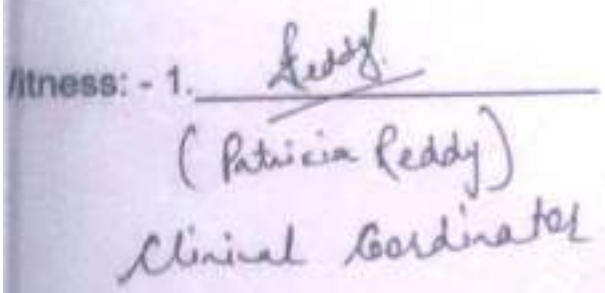 itness: - 1. Reddy
(Patricia Reddy)
Clinical Coordinator